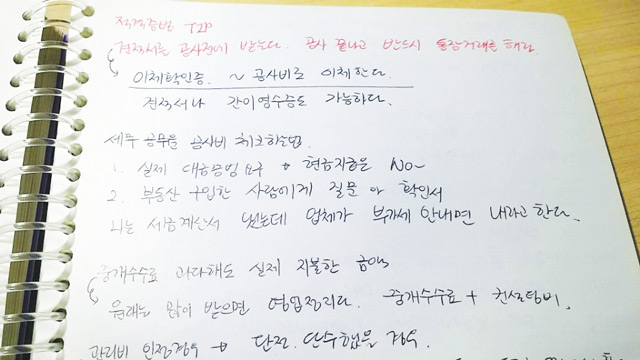 적격증빙 TIP
견적서를 공사전에 받는다. 공사 끝나고 반드시 통장거래를 해라.
이체확인증. ~ 공사비로 이체한다.
견적서나 간이영수증도 가능하다.
세무 공무원 공사비 체크하는법
1. 실제 대금증빙 요구 → 현금지급은 No~
2. 부동산 구입한 사람에게 질문 or 확인서
나는 세금계산서 냈는데 업체가 부가세 안내면 내라고 한다.
중개수수료 과다해도 실제 지불한 금액
원래는 많이 받으면 영업정지다. 중개수수료 + 컨설팅비.
관리비 인정경우 → 단전. 단수했을 경우.